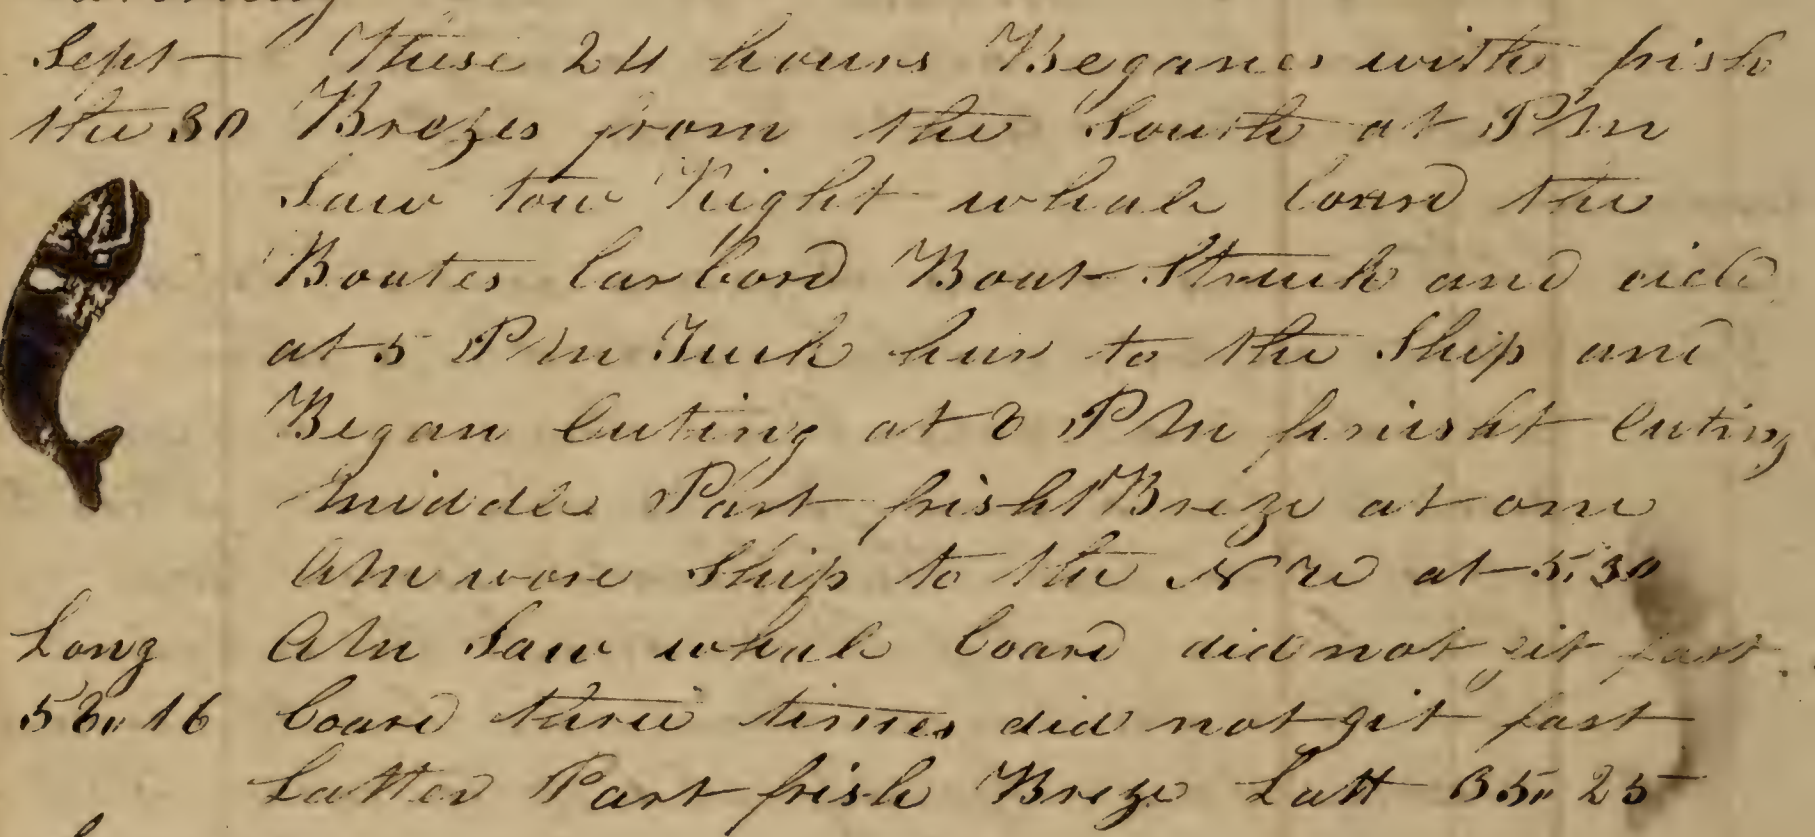 Sept These 24 hours Beganes with frish
the 30 Brezes from the South at PM
Saw tow Right whale loard the
Boates larbord Boat Struck and
at 5 PM Tuck her to the Ship and
Began Cuting at 8 PM finisht Cuting
Middle Part frisht Breze at one
AM wore Ship to the at 5,30
Long AM Saw whale loard did not git fast
53,, 16 loard three times did not git fast
Latter Part frish Breze Latt 35,, 25